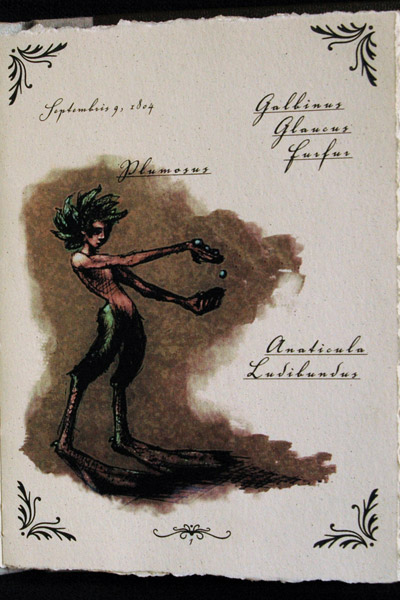 Septembris 9, 1804
Galbinus
Glaucus
Furfur
Plumosus
Anaticula
Ludibundus
1